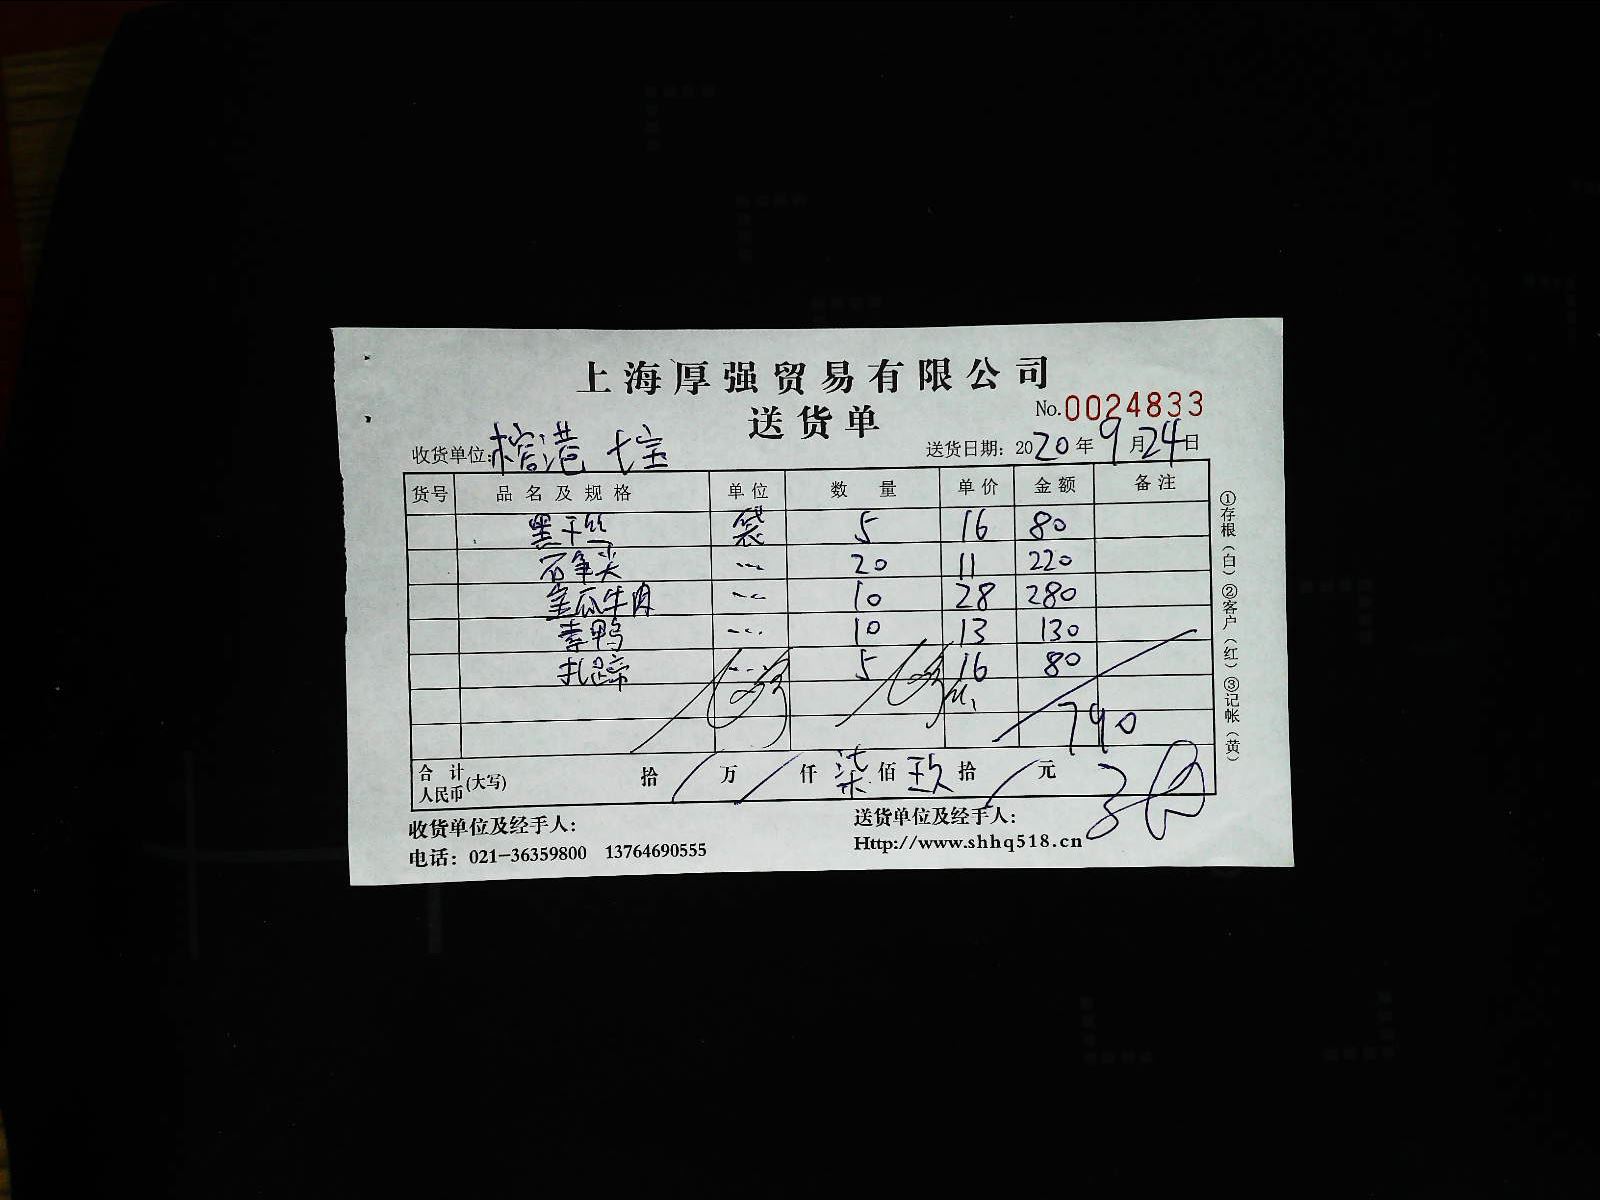 上海厚强贸易有限公司
送货单
No.0024833
收货单位: 七宝
送货日期: 2020年9月24日
货号 品名及规格 单位 数量 单价 金额 备注
黑干丝 袋 5 16 80
石笋尖 〃 20 11 220
金瓜牛肉 〃 10 28 280
素鸭 〃 10 13 130
扎蹄 〃 5 16 80
790
合计人民币(大写) 拾 / 万 / 仟 柒 佰 玖 拾 / 元
收货单位及经手人:
送货单位及经手人:
电话: 021-36359800 13764690555
Http://www.shhq518.cn
①存根(白)②客户(红)③记帐(黄)